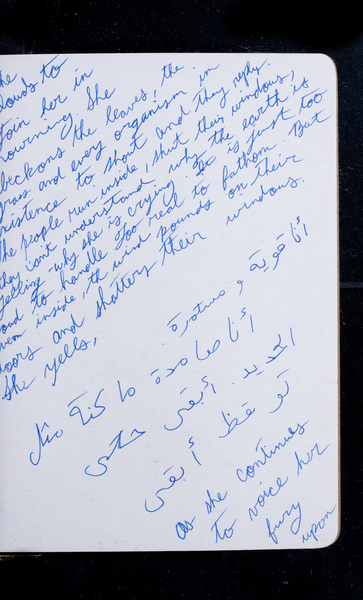 he
clouds to
join her in
mourning. She
beckons the leaves, the
grass and every organism in
existence to shout and they reply.
The people run inside, shut their windows,
they can't understand why the earth is
yelling - why she is crying. It is just too
loud to handle too real to fathom. But
even inside, the wind pounds on their
doors and shatters their windows.
She yells,
أنا قوية و مستمرة.
أنا صامدة ما كنة مثل
الحديد. أبقى حتى
تو قظ أبقى
as she continues
to voice her
fury
upon